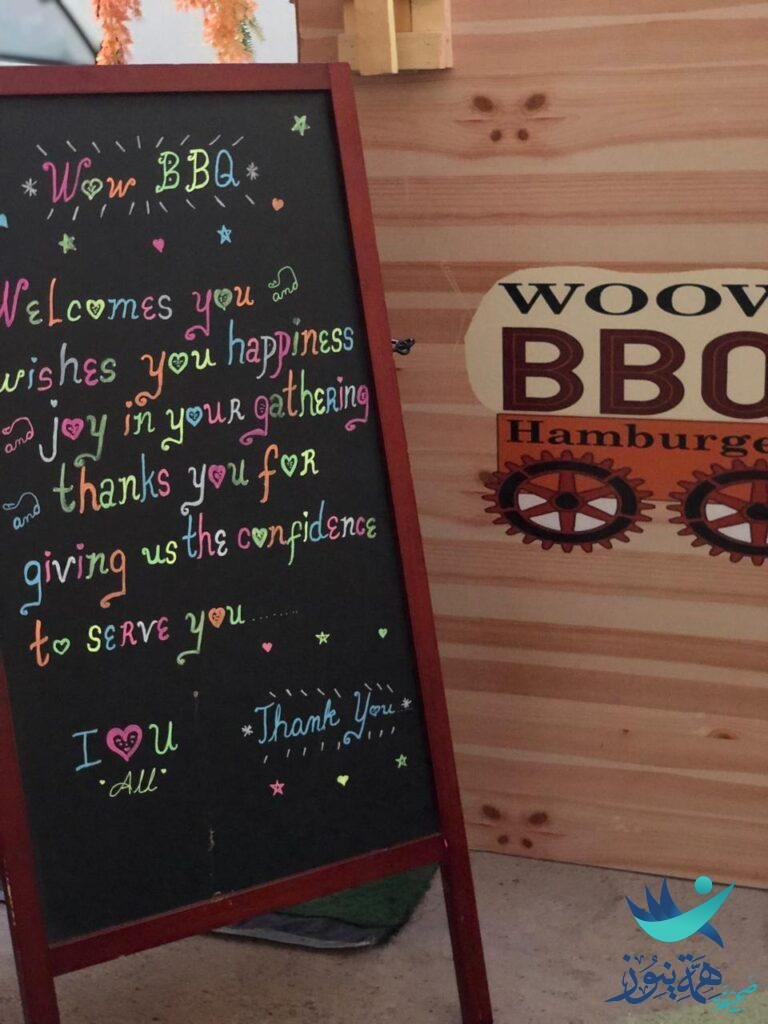 Wow BBQ
Welcomes you and
wishes you happiness
and joy in your gathering
and thanks you for
giving us the confidence
to serve you........
I U
"All"
Thank You
WOOW
BBQ
Hamburge
صحيفة
همة نيوز